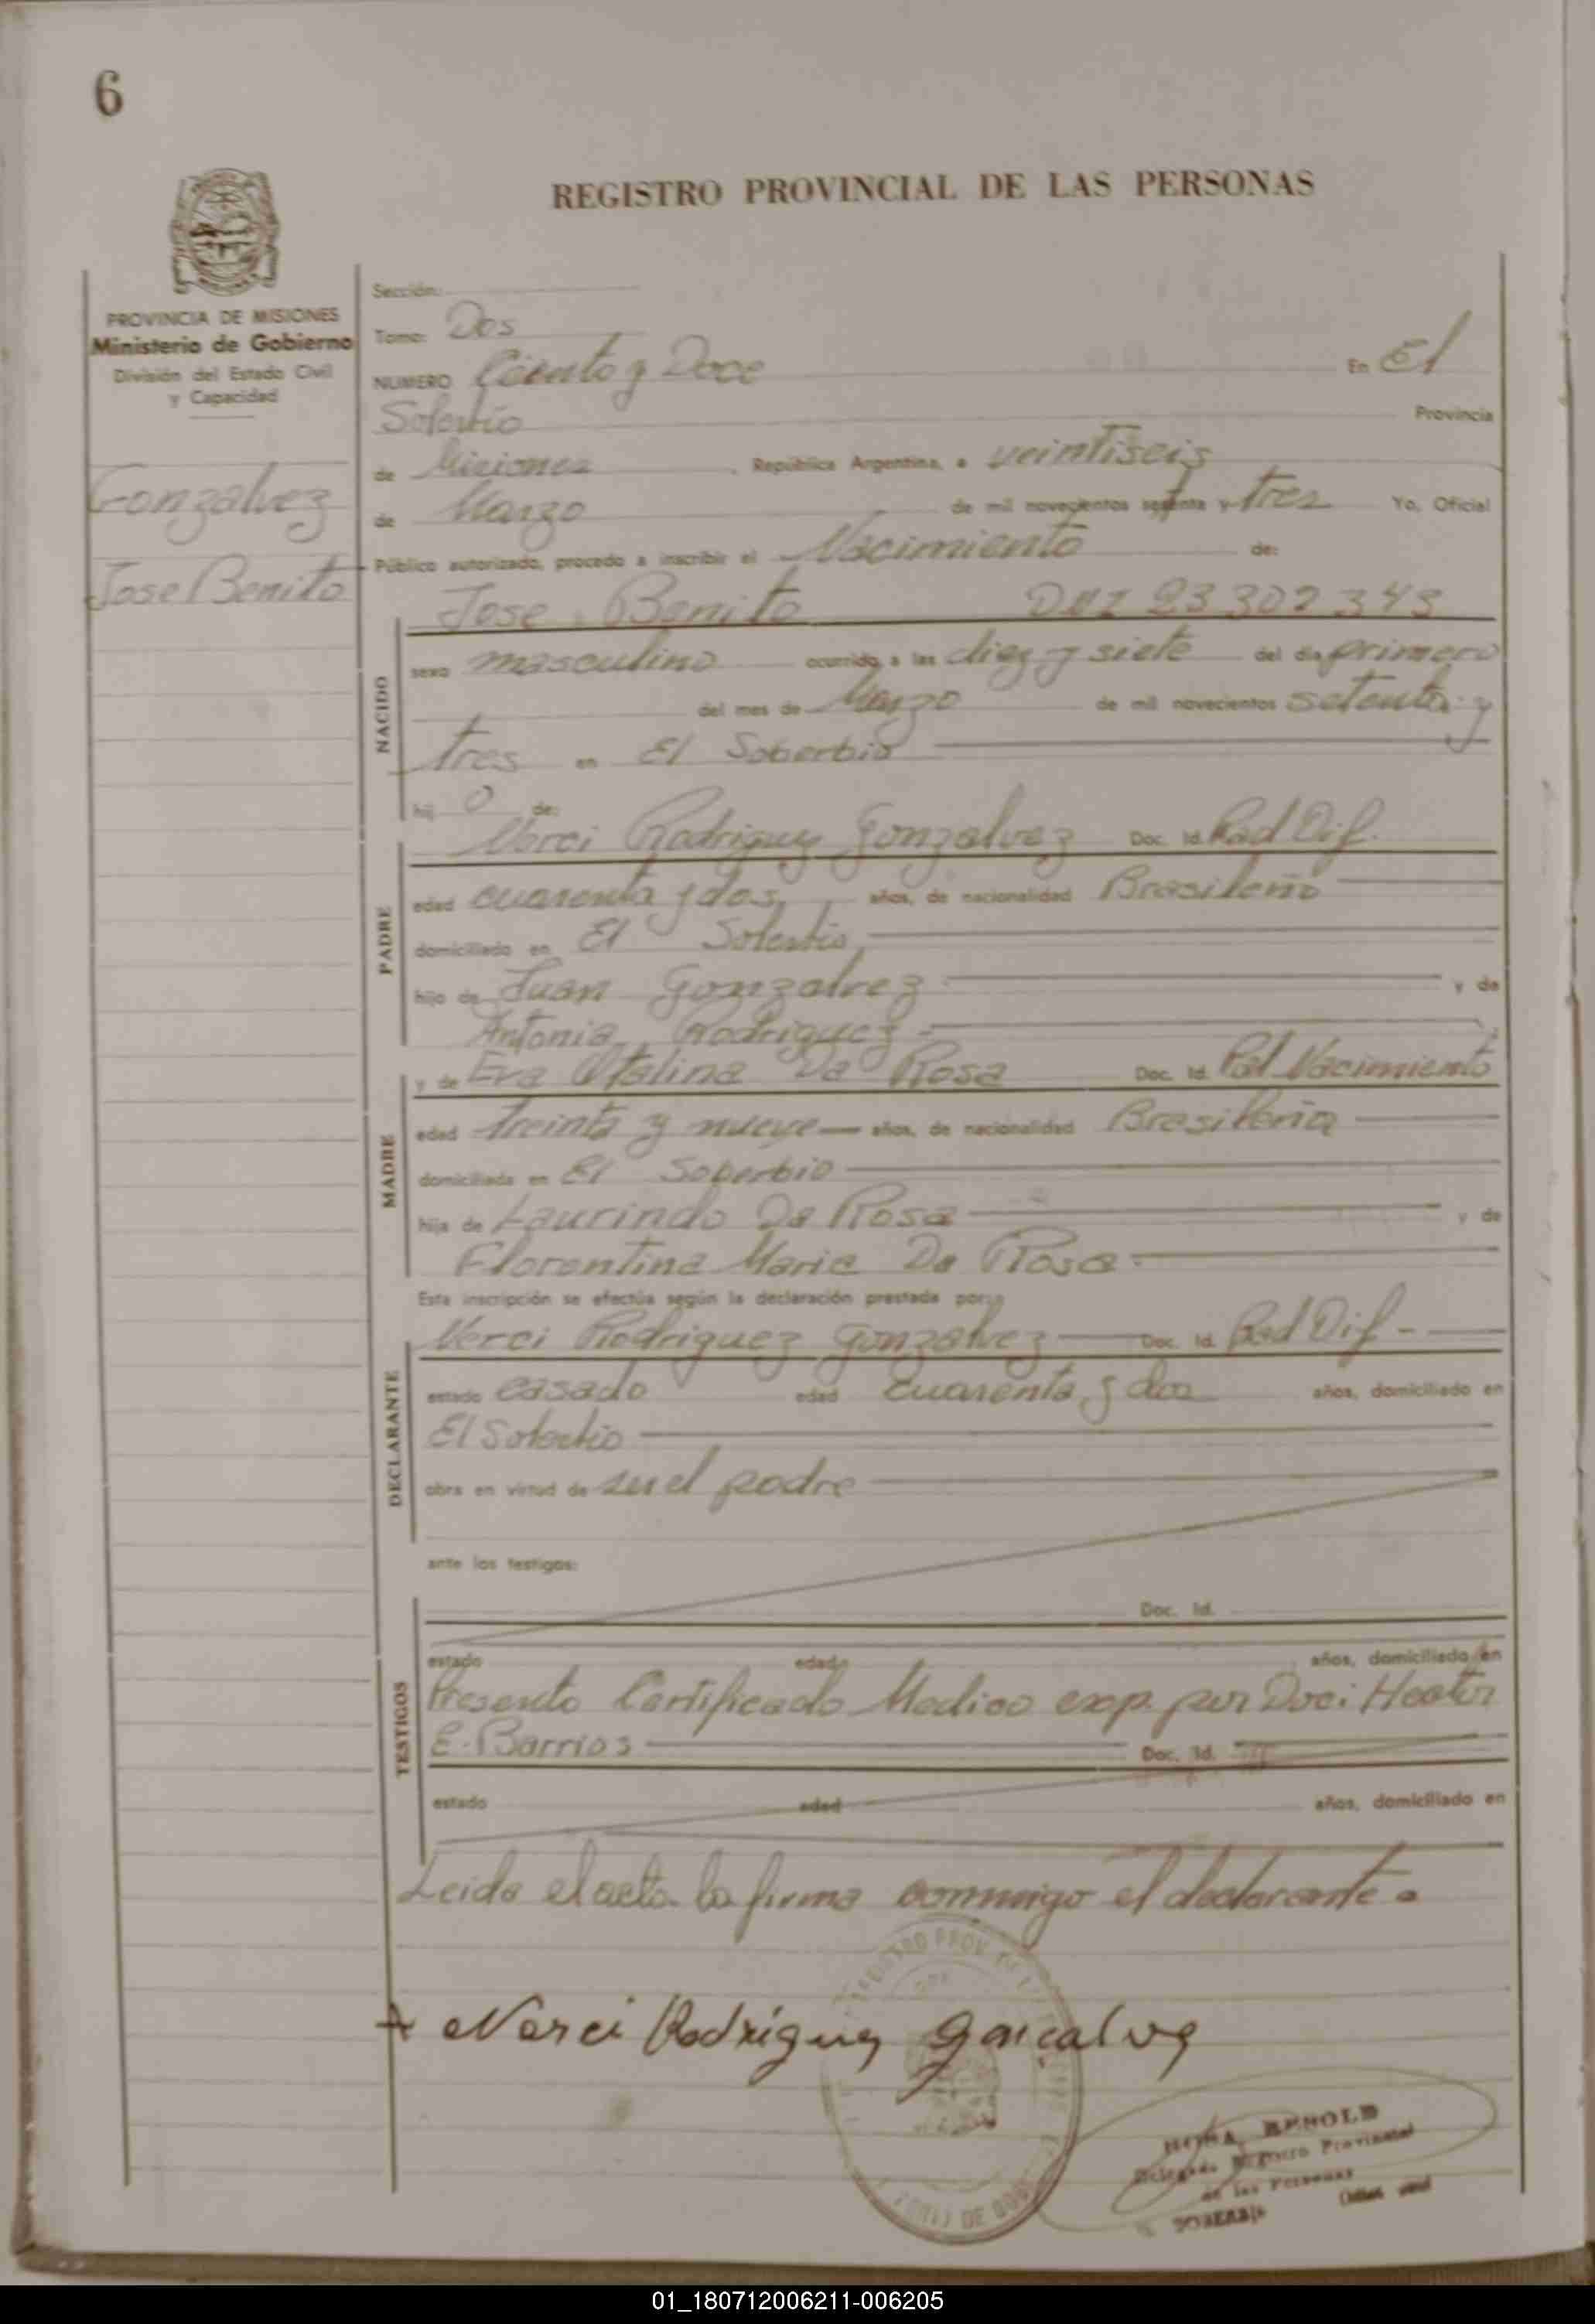 6
REGISTRO PROVINCIAL DE LAS PERSONAS
PROVINCIA DE MISIONES
Ministerio de Gobierno
División del Estado Civil
y Capacidad
Gonzalvez
Jose Benito
Sección:
Tomo: Dos
NUMERO Ciento y Doce En El
Soberbio Provincia
de Misiones República Argentina, a veintiseis
de Marzo de mil novecientos setenta y tres Yo, Oficial
Público autorizado, procedo a inscribir el Nacimiento de:
Jose Benito DNI 23 302 343
NACIDO
sexo masculino ocurrido a las diez y siete del día primero
del mes de Marzo de mil novecientos setenta y
tres en El Soberbio
hij o de:
PADRE
Rodriguez Gonzalvez Doc. Id. Rad Dif.
edad cuarenta y dos años, de nacionalidad Brasileño
domiciliado en El Soberbio
hijo de Juan Gonzalvez y de
Antonia Rodriguez
MADRE
y de Eva Otalina Da Rosa Doc. Id. Nacimiento
edad treinta y nueve años, de nacionalidad Brasileña
domiciliada en El Soberbio
hija de Laurindo Da Rosa y de
Florentina Maria Da Rosa
Esta inscripción se efectúa según la declaración prestada por:
Rodriguez Gonzalvez Doc. Id. Rad Dif -
DECLARANTE
estado casado edad cuarenta y dos años, domiciliado en
El Soberbio
obra en virtud de ser el padre
ante los testigos:
Doc. Id.
TESTIGOS
estado edad años, domiciliado en
Presento Certificado Medico exp. por Hector
E. Barrios Doc. Id.
estado edad años, domiciliado en
Leida el acta la firma conmigo el declarante
Rodriguez Gonçalves
BEROLD
Delegada Registro Provincial
de las Personas
SOBERBIO
01_180712006211-006205